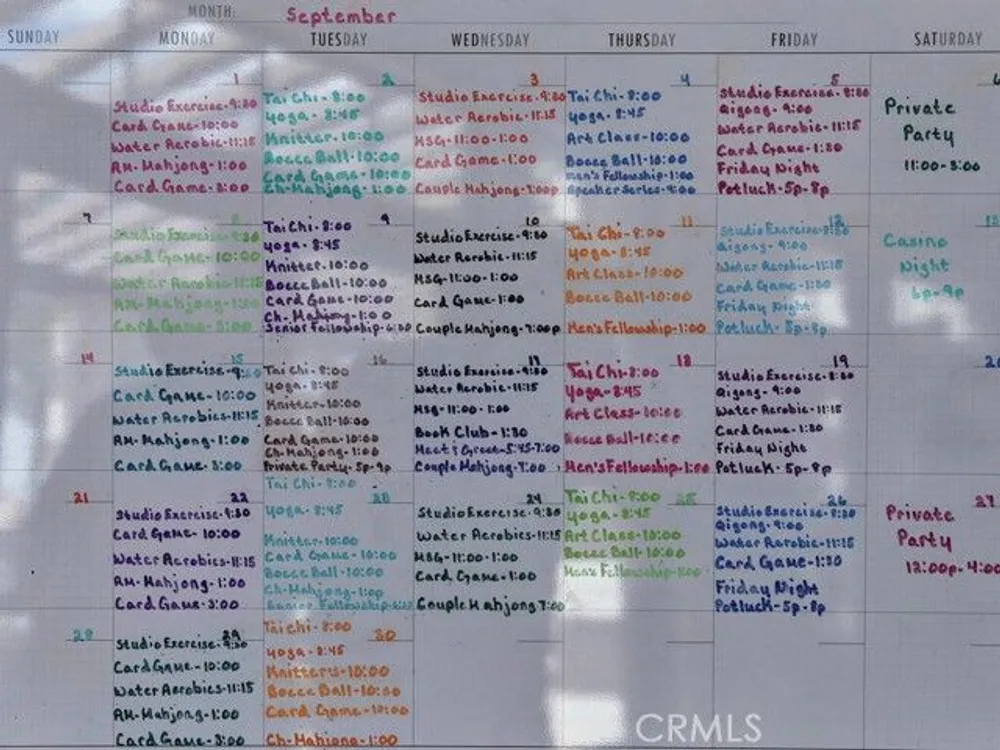 MONTH: September
SUNDAY MONDAY TUESDAY WEDNESDAY THURSDAY FRIDAY SATURDAY
1
Studio Exercise-9:30
Card Game-10:00
Water Aerobic-11:15
AM-Mahjong-1:00
Card Game-3:00
2
Tai Chi-8:00
Yoga-8:45
Knitter-10:00
Bocce Ball-10:00
Card Game-10:00
Ch-Mahjong-1:00
3
Studio Exercise-9:30
Water Aerobic-11:15
HSG-11:00-1:00
Card Game-1:00
Couple Mahjong-7:00p
4
Tai Chi-8:00
Yoga-8:45
Art Class-10:00
Bocce Ball-10:00
Men's Fellowship-1:00
Speaker Series-4:00
5
Studio Exercise-8:30
Qigong-9:00
Water Aerobic-11:15
Card Game-1:30
Friday Night
Potluck-5p-8p
6
Private
Party
11:00-3:00
7
8
Studio Exercise-9:30
Card Game-10:00
Water Aerobic-11:15
AM-Mahjong-1:00
Card Game-3:00
9
Tai Chi-8:00
Yoga-8:45
Knitter-10:00
Bocce Ball-10:00
Card Game-10:00
Ch-Mahjong-1:00
Senior Fellowship-6:00
10
Studio Exercise-9:30
Water Aerobic-11:15
HSG-11:00-1:00
Card Game-1:00
Couple Mahjong-7:00p
11
Tai Chi-8:00
Yoga-8:45
Art Class-10:00
Bocce Ball-10:00
Men's Fellowship-1:00
12
Studio Exercise-8:30
Qigong-9:00
Water Aerobic-11:15
Card Game-1:30
Friday Night
Potluck-5p-8p
13
Casino
Night
6p-9p
14
15
Studio Exercise-9:30
Card Game-10:00
Water Aerobics-11:15
AM-Mahjong-1:00
Card Game-3:00
16
Tai Chi-8:00
Yoga-8:45
Knitter-10:00
Bocce Ball-10:00
Card Game-10:00
Ch-Mahjong-1:00
Private Party-5p-9p
17
Studio Exercise-9:30
Water Aerobic-11:15
HSG-11:00-1:00
Book Club-1:30
Meet & Greet-5:45-7:00
Couple Mahjong-7:00
18
Tai Chi-8:00
Yoga-8:45
Art Class-10:00
Bocce Ball-10:00
Men's Fellowship-1:00
19
Studio Exercise-8:30
Qigong-9:00
Water Aerobic-11:15
Card Game-1:30
Friday Night
Potluck-5p-8p
20
21
22
Studio Exercise-9:30
Card Game-10:00
Water Aerobics-11:15
AM-Mahjong-1:00
Card Game-3:00
Tai Chi-8:00
Yoga-8:45
Knitter-10:00
Card Game-10:00
Bocce Ball-10:00
Ch-Mahjong-1:00p
Senior Fellowship
24
Studio Exercise-9:30
Water Aerobics-11:15
HSG-11:00-1:00
Card Game-1:00
Couple Mahjong 7:00
25
Tai Chi-8:00
Yoga-8:45
Art Class-10:00
Bocce Ball-10:00
Men's Fellowship-1:00
26
Studio Exercise-8:30
Qigong-9:00
Water Aerobic-11:15
Card Game-1:30
Friday Night
Potluck-5p-8p
27
Private
Party
12:00p-4:00
28
29
Studio Exercise-9:30
Card Game-10:00
Water Aerobics-11:15
AM-Mahjong-1:00
Card Game-3:00
30
Tai Chi-8:00
Yoga-8:45
Knitter's-10:00
Bocce Ball-10:00
Card Game-10:00
Ch-Mahjong-1:00
CRMLS